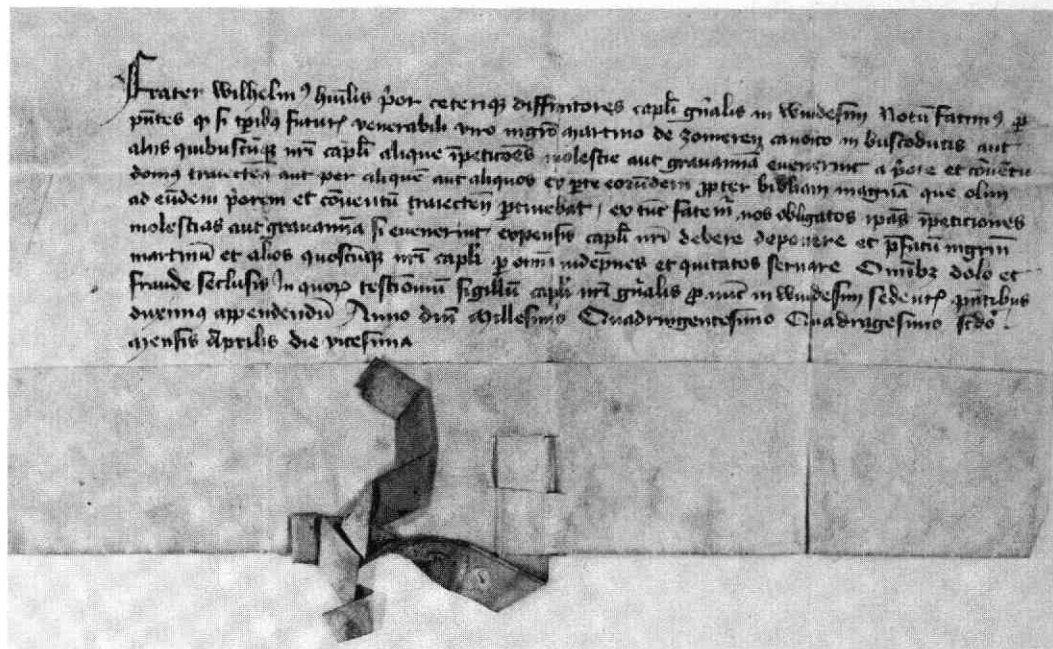 Frater Wilhelm9 hūilis p̄or ceteriq̨ diffinitores capl̄i gn̄alis in windesim̄ Notū facim9 p̱
pn̄tes q̇ si tp̄ib9 futurꝭ venerabili viro mgr̄o martino de zomereṇ canōico in buscoducis aut
aliis quibuscūq̨ nr̄i capl̄i alique īpeticōēs molestie aut gravam̄ina evenerint a p̄ore et cōvētu
domus traiecteṇ aut per aliquē aut aliquos ex p̱te eorūdem p̱pter bibliam magnā que olim
ad eūdem p̄orem et cōventū traiecteṇ p̱tinebat / ex tūc fatem̄ nos obligatos ip̄as īpeticiones
molestias aut gravam̄ina si evenerint expensis capl̄i nr̄i debere deponere et p̄fatū mgr̄m
martinū et alios quoscūq̨ nr̄i capl̄i p̱ om̄ia indēpnes et quitatos servare Om̄ibꝫ dolo et
fraude seclusis In quoꝝ testimoniū sigillū capl̄i nr̄i gn̄alis p̱ nūc in windesim̄ sedentꝭ pn̄tibus
duxim9 appendendū Anno dn̄i Millesimo Quadringentesimo Quadragesimo scd̄o
mensis Aprilis die vicesima